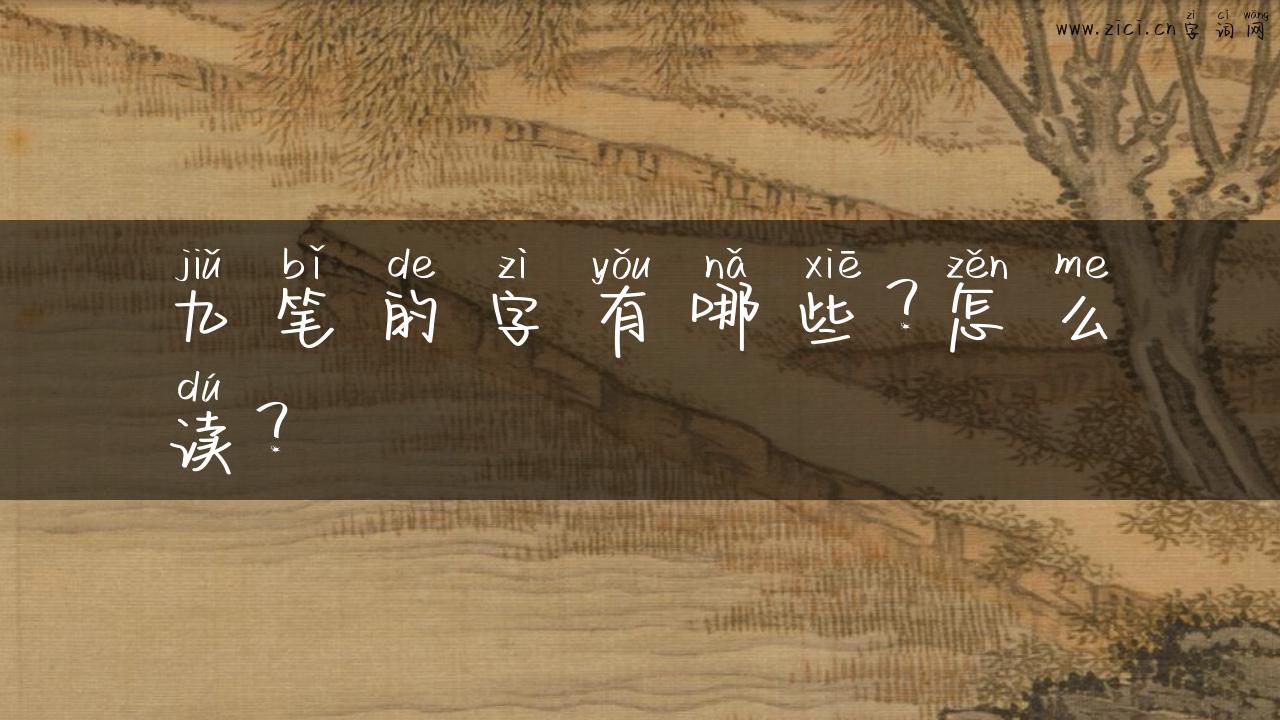 zì cí wǎng
www.zici.cn字词网
jiǔ bǐ de zì yǒu nǎ xiē zěn me
九笔的字有哪些？怎么
dú
读？